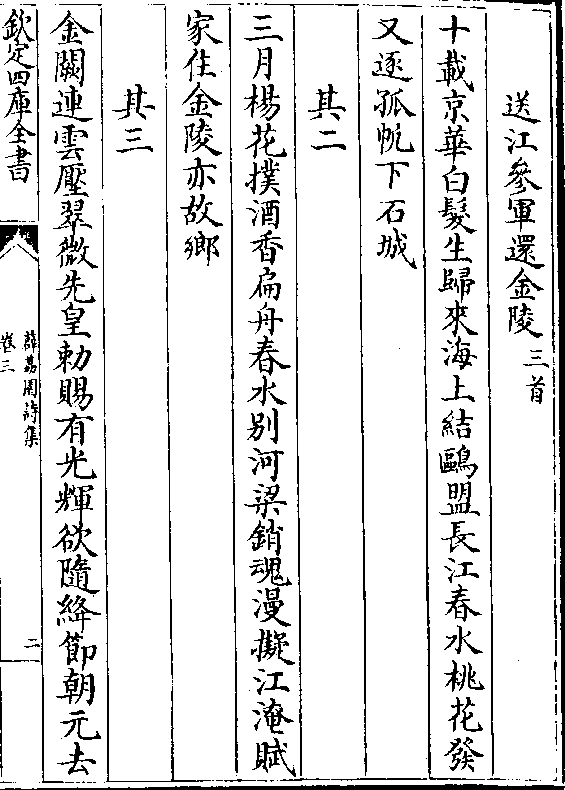 送江參軍還金陵三首
十載京華白髮生歸來海上結鷗盟長江春水桃花發
又逐孤帆下石城
其二
三月楊花撲酒香扁舟春水別河梁銷魂漫擬江淹賦
家住金陵亦故鄉
其三
金闕連雲壓翠微先皇勅賜有光輝欲隨絳節朝元去
欽定四庫全書
薛荔園詩集
卷三
二